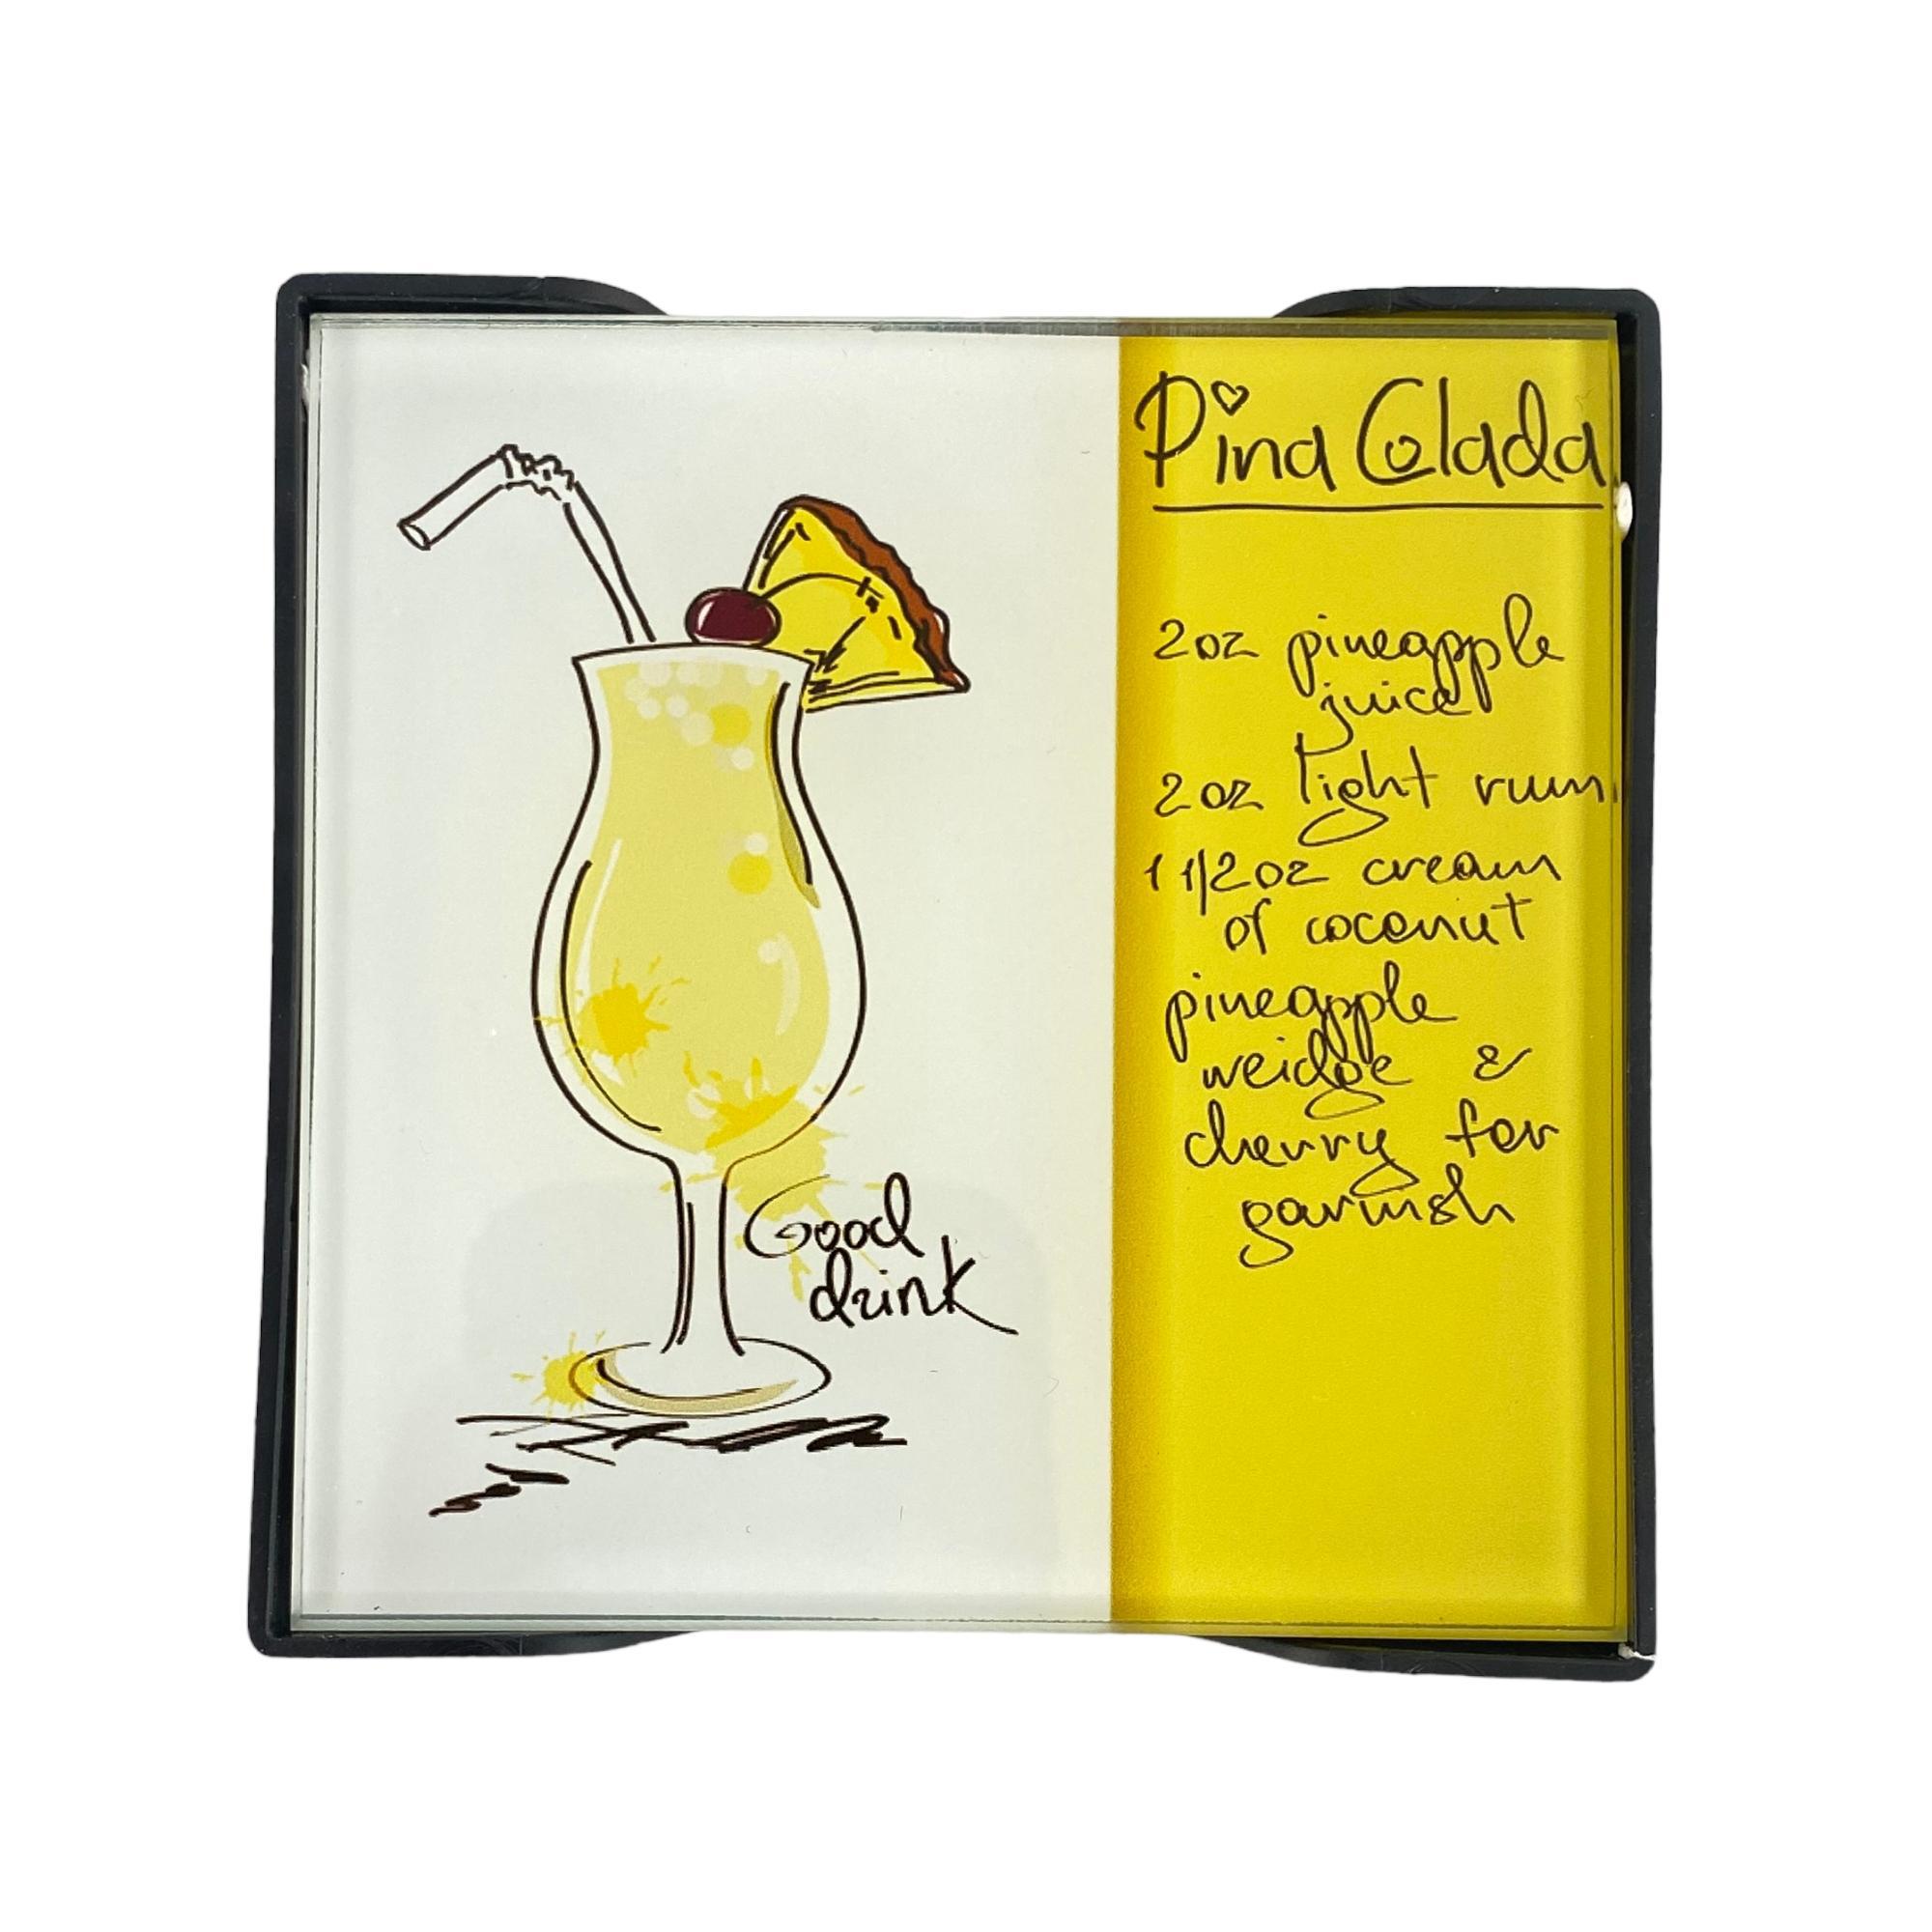 Pina Colada
2oz pineapple
juice
2oz light rum
1 1/2oz cream
of coconut
pineapple
weidge &
cherry for
garnish
Good
drink